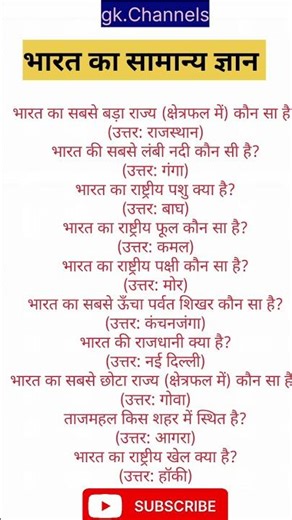 gk.Channels
भारत का सामान्य ज्ञान
भारत का सबसे बड़ा राज्य (क्षेत्रफल में) कौन सा है
(उत्तर: राजस्थान)
भारत की सबसे लंबी नदी कौन सी है?
(उत्तर: गंगा)
भारत का राष्ट्रीय पशु क्या है?
(उत्तर: बाघ)
भारत का राष्ट्रीय फूल कौन सा है?
(उत्तर: कमल)
भारत का राष्ट्रीय पक्षी कौन सा है?
(उत्तर: मोर)
भारत का सबसे ऊँचा पर्वत शिखर कौन सा है?
(उत्तर: कंचनजंगा)
भारत की राजधानी क्या है?
(उत्तर: नई दिल्ली)
भारत का सबसे छोटा राज्य (क्षेत्रफल में) कौन सा है
(उत्तर: गोवा)
ताजमहल किस शहर में स्थित है?
(उत्तर: आगरा)
भारत का राष्ट्रीय खेल क्या है?
(उत्तर: हॉकी)
SUBSCRIBE